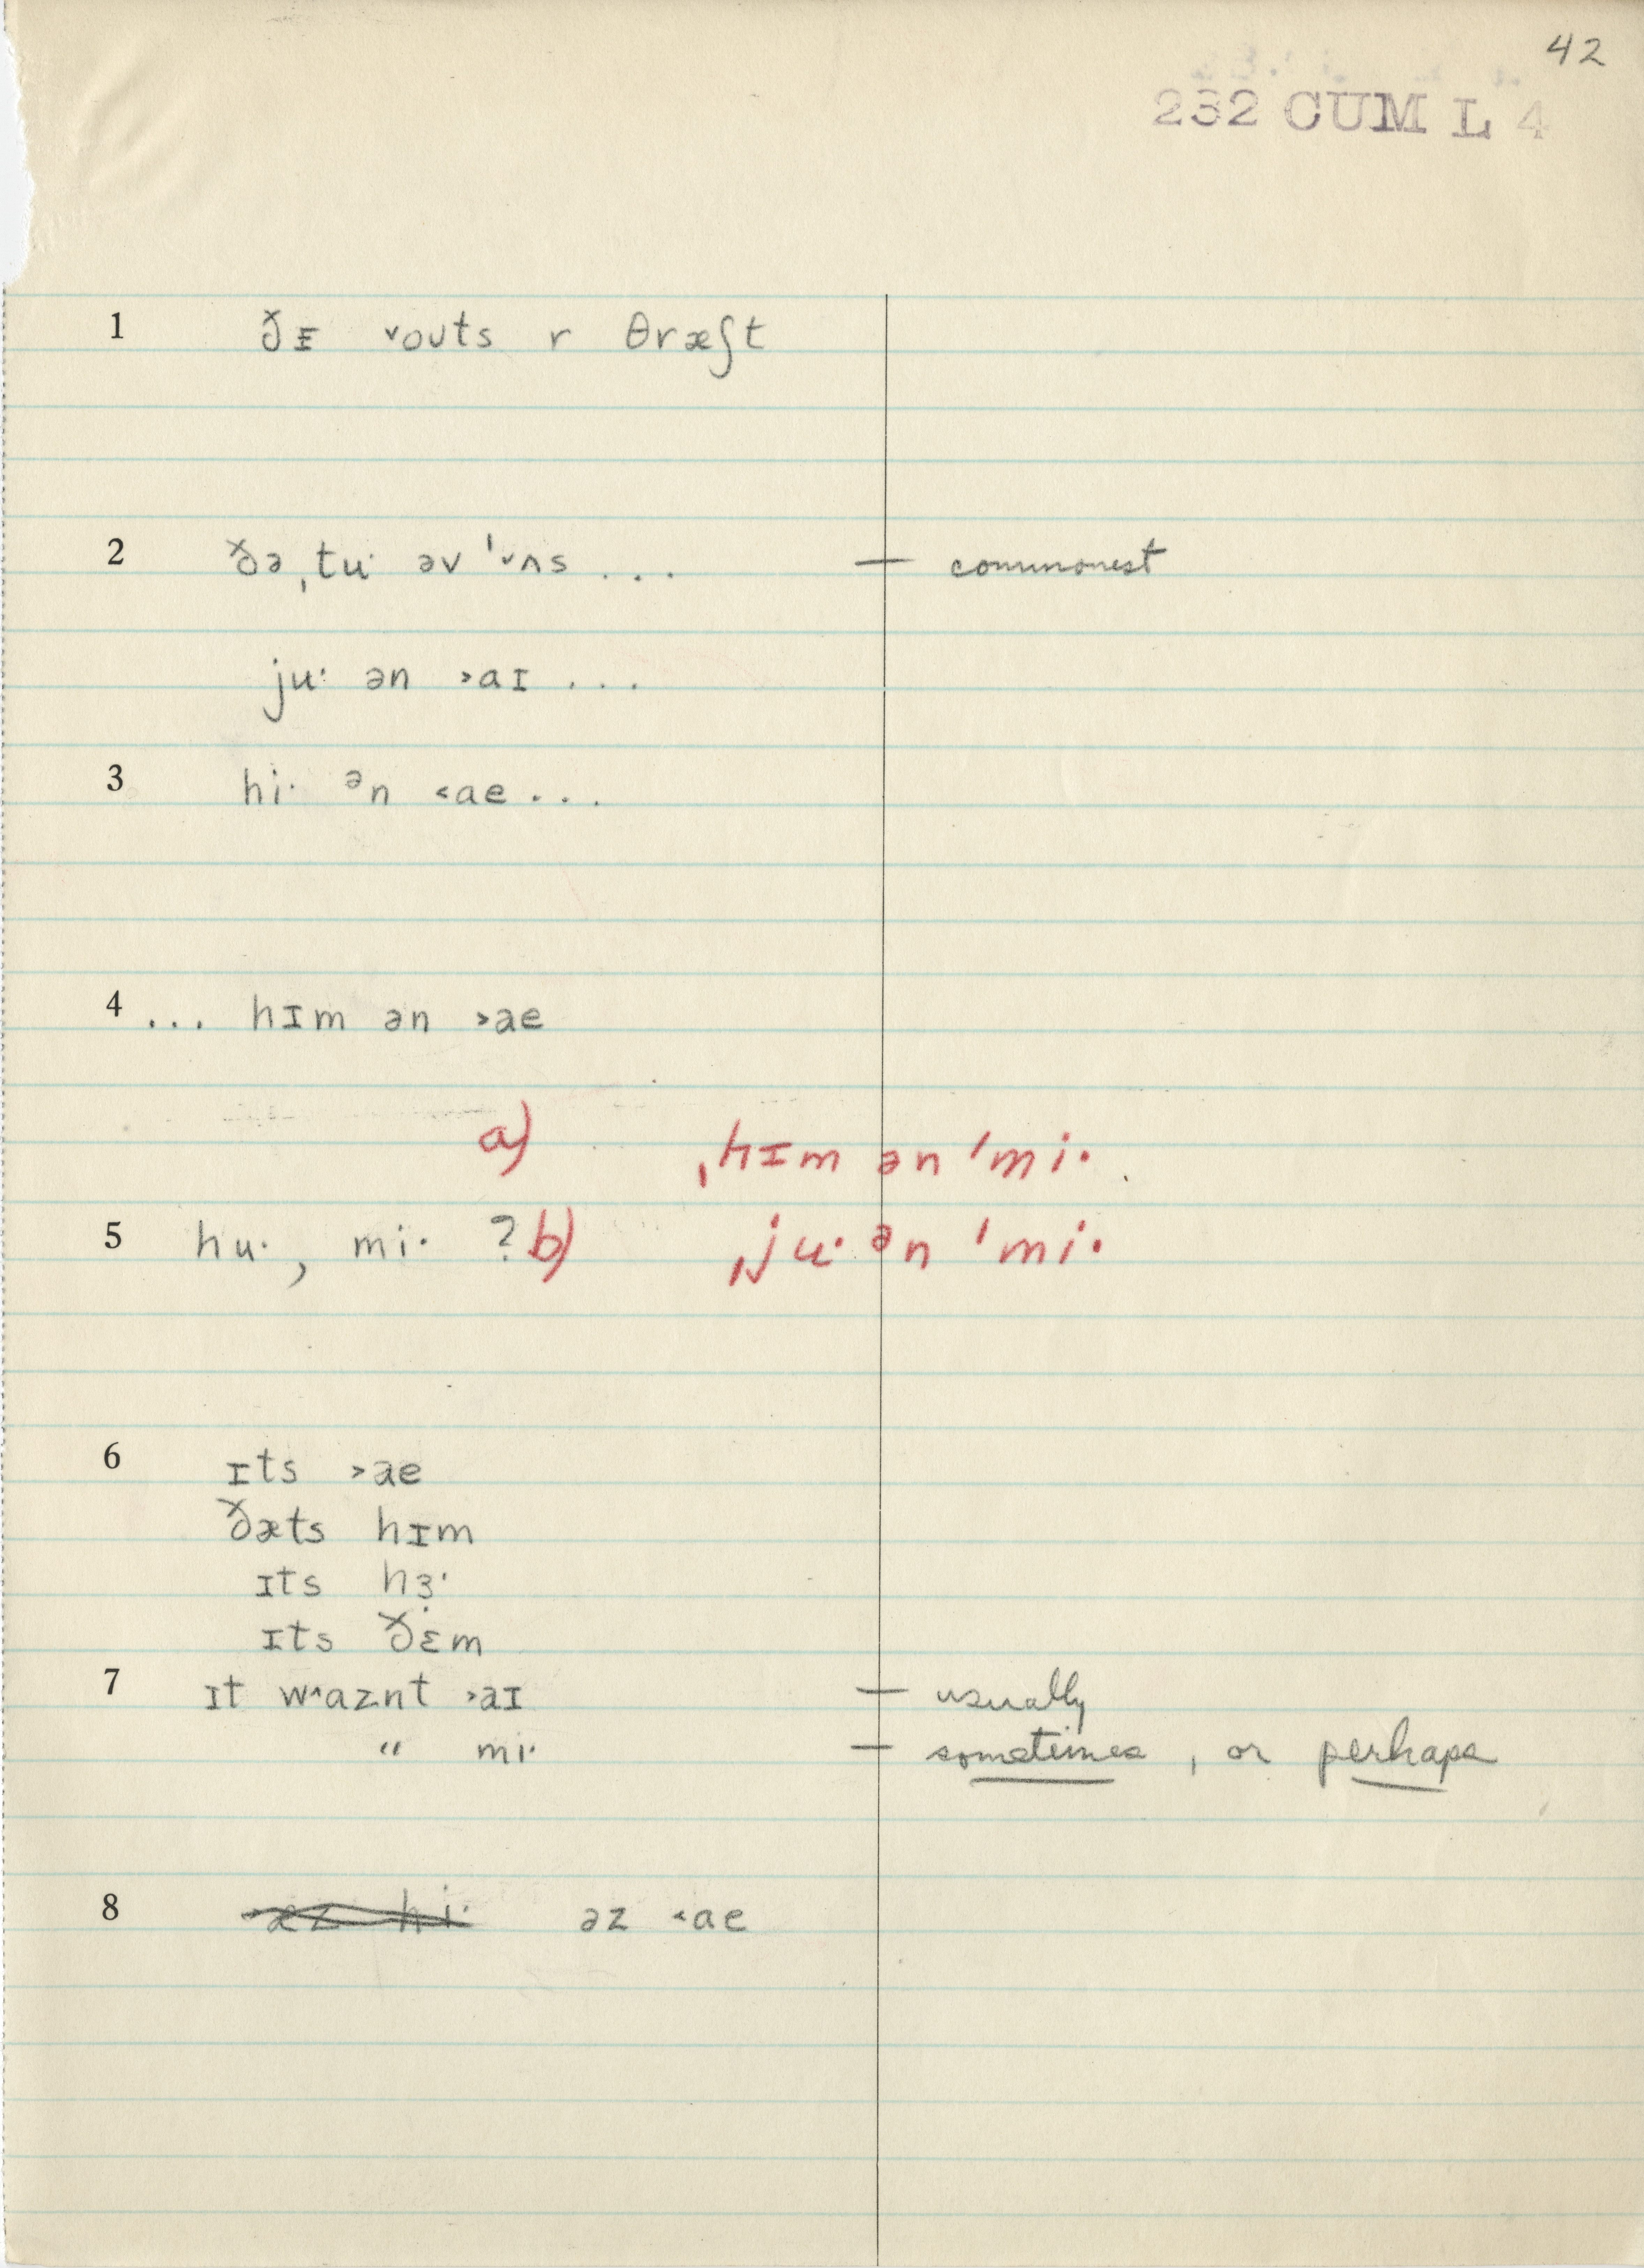 42
232 CUM L 4
1 ðɪ ˅oʊts r θræʃt
2 ðə ˌtuˑ əv ˈ˅ʌs ... — commonest
juˑ ən ˃aɪ ...
3 hiˑ ᵊn ˂ae ...
4 ... hɪm ən ˃ae
a) ˌhɪm ən ˈmiˑ
5 huˑ, miˑ ? b) ˌjuˑ ᵊn ˈmiˑ
6 ɪts ˃ae
ðæts hɪm
ɪts hɜ̣ˑ
ɪts ðɛm
7 ɪt w˄aznt ˃aɪ — usually
" miˑ — sometimes, or perhaps
8 əz ˂ae